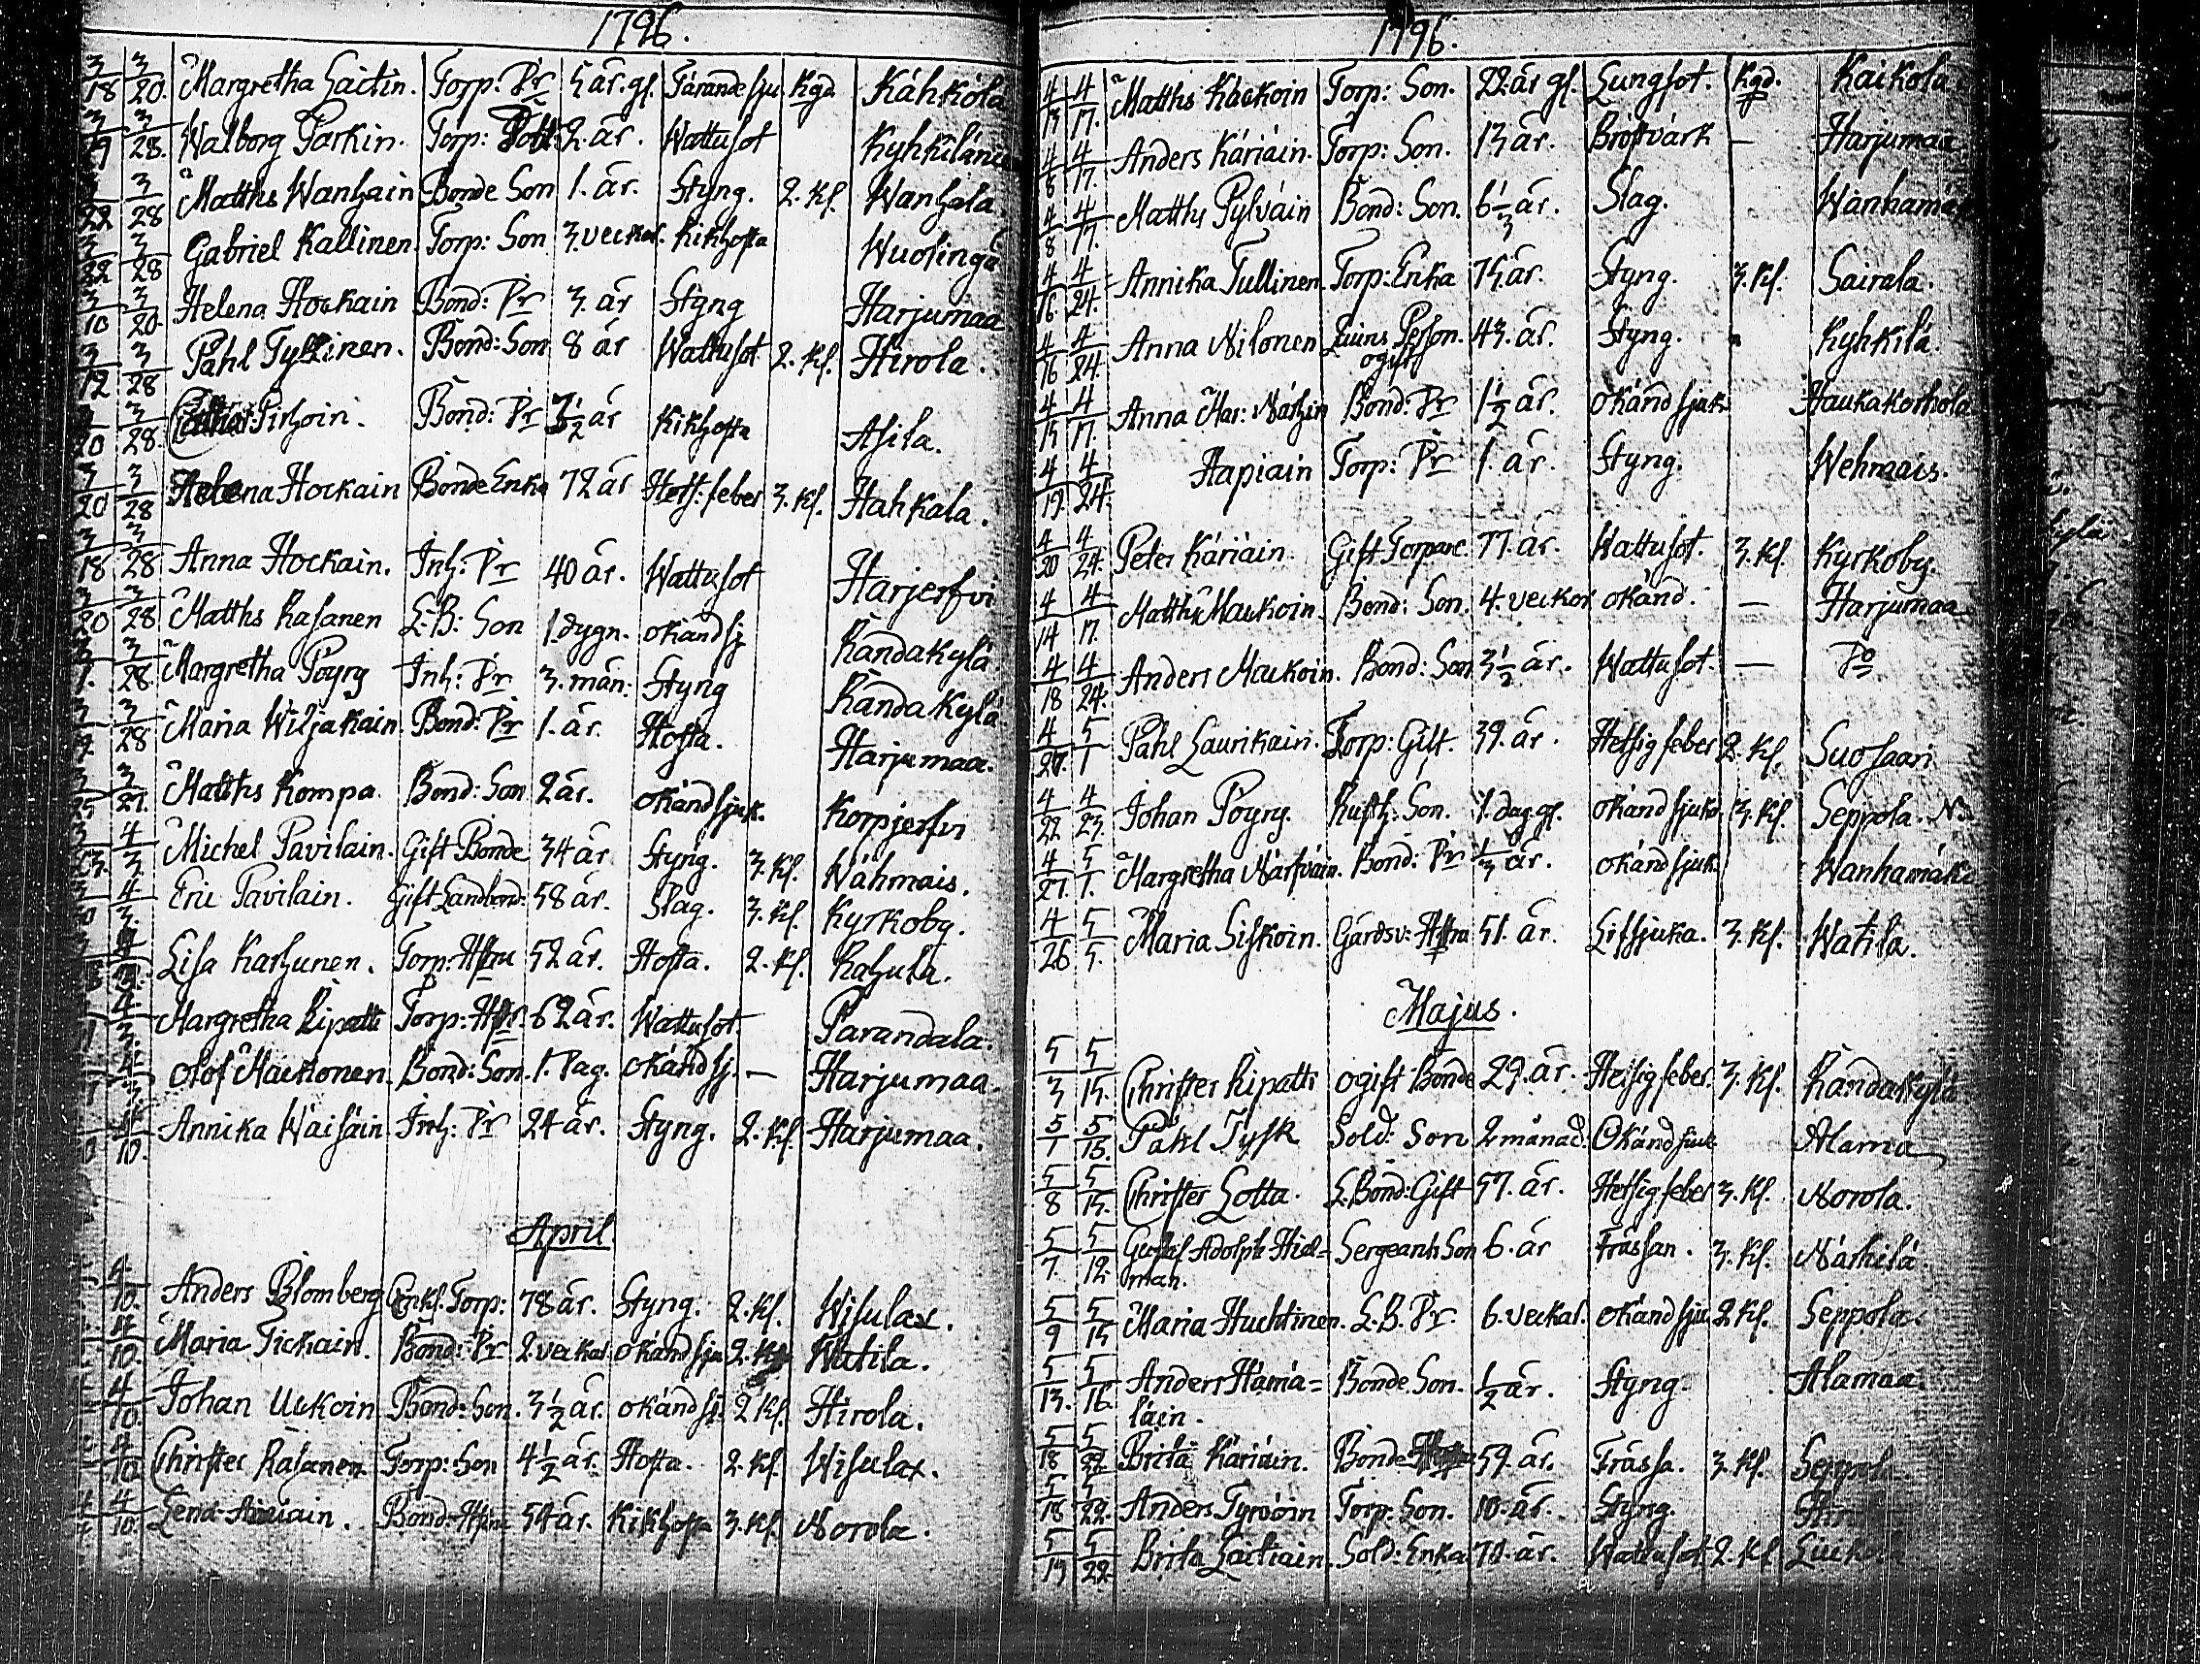 1796.
3/18 3/20. Margretha Laitin. Torp: Pr 5 år. gl. Tärande sju Kgd Kähkölä
3/19 3/28. Walborg Parkin. Torp: Dott: 2. år. Wattusot Kyhkilänie
3/22 3/28 Matths Wanhain Bonde Son 1. år. Styng. 2. Kl. Wanhala
3/22 3/28 Gabriel Kallinen. Torp: Son 3. veckor. Kikhosta Wuolinga
3/10 3/20. Helena Hockain Bond: Pr 3. år Styng Harjumaa
3/12 3/28 Pahl Tyllinen. Bond: Son 8 år Wattusot 2. Kl. Hirola.
3/20 3/28. Pirhoin. Bond: Pr 3 1/2 år Kikhosta Asila.
3/20 3/28 Helena Hockain Bonde Enka 72 år Hets: feber 3. Kl. Hahkala.
3/18 3/28 Anna Hockain. Inh: Pr 40 år. Wattusot Harjerfvi
3/20 3/28 Matths Rasanen L: B: Son 1. dygn. okänd sj Randakylä
3/7. 3/28 Margretha Pöyry Inh: Pr 3. mån: Styng Randakylä
3/28 Maria Wiljakain. Bond: Pr 1. år. Hosta. Harjumaa.
3/25 3/27. Matths Kompa. Bond: Son 2 år. okänd sjuk. Korpjerfvi
4/3. Michel Pavilain. Gift Bonde 34 år. Styng. 3. Kl. Wähmais.
4/3. Eric Pavilain. Gift Landbond: 58 år. Slag. 3. Kl. Kyrkoby.
4/3. Lisa Karhunen. Torp: Hstru 52 år. Hosta. 2. Kl. Rahula.
4/3. Margretha Ripatti Torp: Hstr. 62 år. Wattusot. Parandala.
4/3. Olof Mackonen. Bond: Son. 1. Dag. okänd sj. — Harjumaa.
4/10. Annika Wäisäin Inh: Pr 24 år. Styng. 2. Kl. Harjumaa.
April.
4/10. Anders Blomberg Enkl. Torp: 78 år. Styng. 2. Kl. Wisulax.
4/10. Maria Tickain. Bond: Pr 2. veckor. okänd sju 2. Kl Watila.
4/10. Johan Uckoin Bond: Son. 3 1/2 år. okänd sj. 2 Kl. Hirola.
4/10 Christer Rasanen Torp: Son 4 1/2 år. Hosta. 2. Kl. Wisulax.
4/7 4/10. Lena Bond: Hstru 54 år. Kikhosta 3. Kl. Norola.
1796.
4/13 4/17. Matths Käckoin Torp: Son. 22. år gl. Lungsot. Kgd. Kaikola
4/8 4/17. Anders Käriäin. Torp: Son. 13 år. Bröstvärk — Harjumaa
4/8 4/17. Matths Pylväin Bond: Son. 6 1/3 år. Slag. Wanhamäk
4/16. 4/24. Annika Tullinen Torp: Enka 75. år. Styng. 3. Kl. Sairala.
4/16 4/24. Anna Nilonen Person. ogift 43. år. Styng. Kyhkilä.
4/15 4/17. Anna Mar: Närhin Bond: Pr 1 1/2 år. okänd sjuk Haukakorhola
4/19. 4/24. Hapiain Torp: Pr 1. år. Styng. Wehmais.
4/20 4/24. Peter Käriäin. Gift Torpare 77. år. Wattusot. 3. Kl. Kyrkoby.
4/14 4/17. Matths Mackoin. Bond: Son. 4. veckor okänd. — Harjumaa
4/18 4/24. Anders Mackoin. Bond: Son 3 1/2 år. Wattusot. — Do
4/27. 5/1 Pahl Laurikain. Torp: Gift. 39. år. Hetsig feber 2. Kl. Suosaari
4/22. 4/23. Johan Pöyry. Rusth: Son. 1. dag gl. okänd sjuk 3. Kl. Seppola.
4/27. 5/1. Margretha Närfväin. Bond: Pr 1/3 år. okänd sjuk Wanhamäki
4/26 5/5. Maria Siskoin. Gårdsv: Hstru 51. år. Lissjuka. 3. Kl. Watila.
Majus.
5/3 5/15. Christer Ripatti ogift Bonde 29. år. Hetsig feber 3. Kl. Randakylä
5/1 5/15. Pähl Tysk Sold: Son 2 månad: Okänd siuk Alama
5/8 5/15. Christer Lotta. L. Bond: Gift 57. år. Hetsig feber 3. Kl. Norola.
5/7. 5/12. Gustaf Adolph Hiel=
man. Sergeants Son 6. år Frässan. 3. Kl. Närhilä.
5/9 5/15 Maria Huchtinen. L. B. Pr. 6. veckor. okänd sju 2 Kl. Seppola.
5/13. 5/16. Anders Hämä=
läin. Bonde Son. 1/2 år. Styng. Alamaa.
5/18 5/22 Brita Käriäin. Bonde 59. år. Frässa. 3. Kl. Seppola
5/18 5/22. Anders Tyrvöin Torp: Son. 10. år. Styng.
5/19 5/22. Brita Laitiain. Sold: Enka 70. år. Wattusot 2. Kl